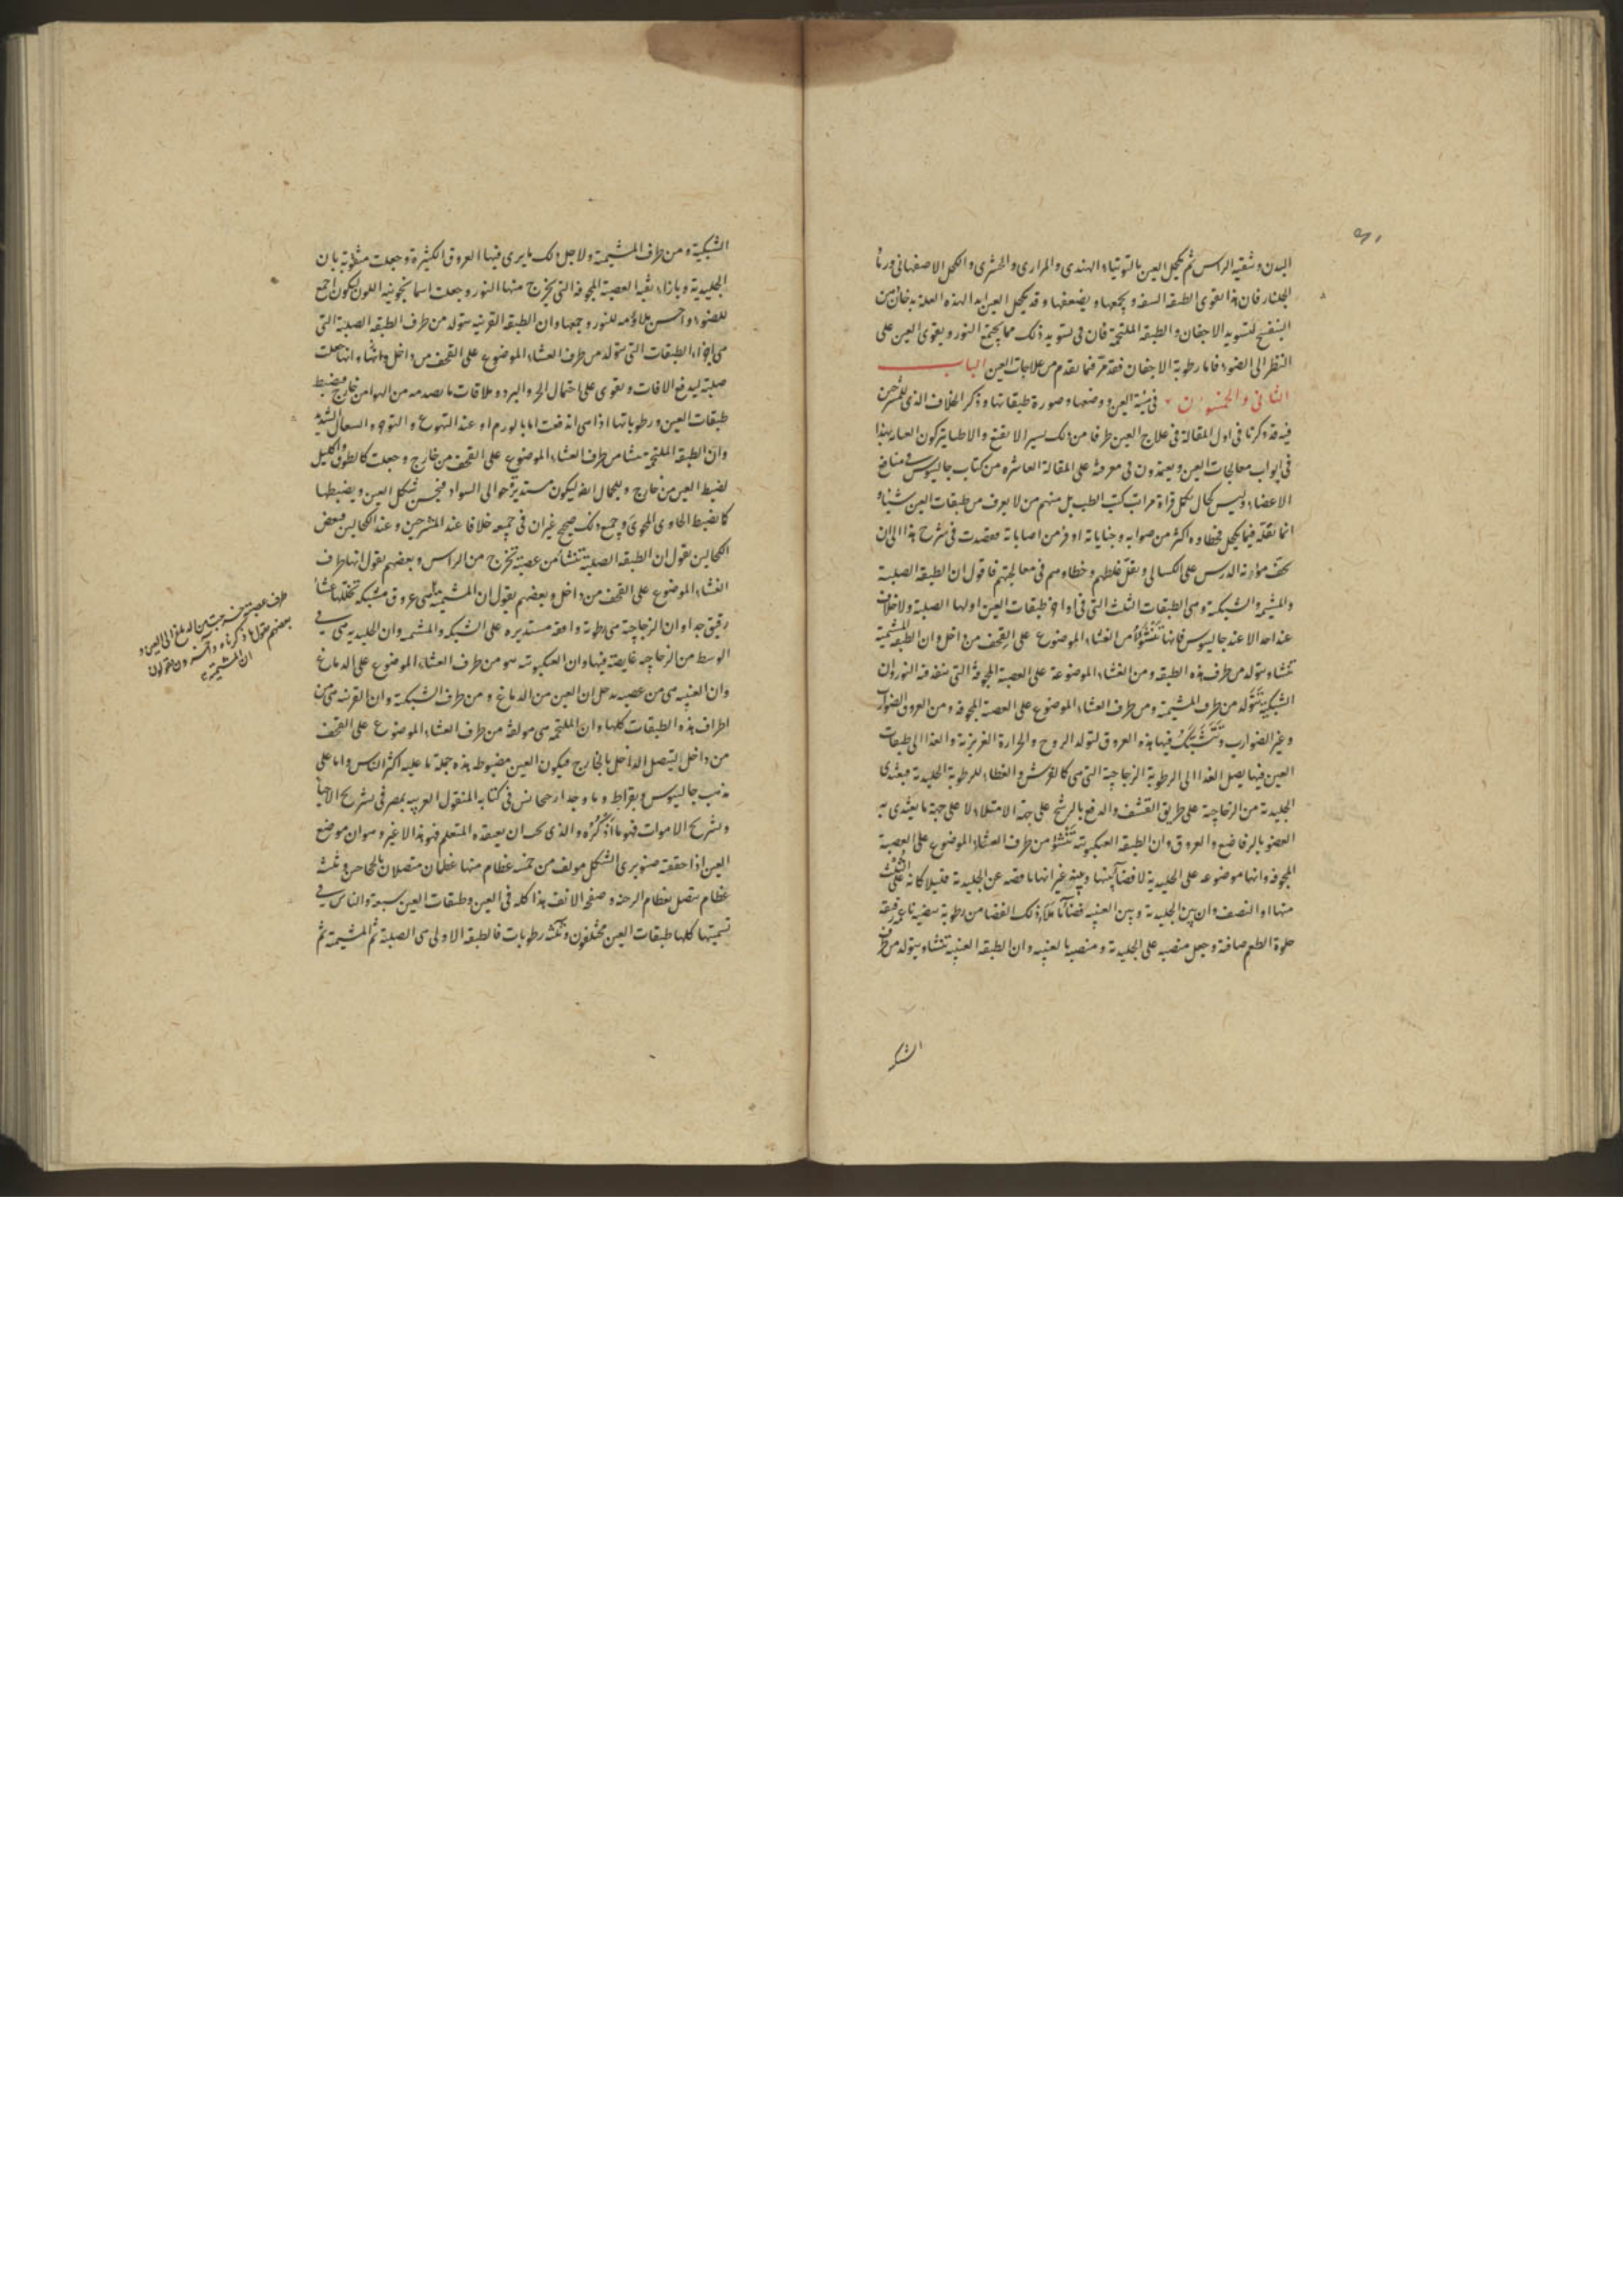 البدن وتنقية الراس ثم يكحل العين بالتوتياء الهندى والمرارى والحشرى والكحل الاصفهانى ورماد
الجلنار فان هذا يقوى الطبقه السفه ويجمعها ويضعفها وقد يكحل العين ابدا لهذه العلة بدخان من
البنفسج لتسويد الاجفان والطبقه الملتحمة فان فى تسويد ذلك مما يجمع النور ويقوى العين على
النظر الى الضوء فاما رطوبة الاجفان فقد مر فيما يقدم من علاجات العين الباب
الثانى والخمسون فى هيئة العين ووضعها وصورة طبقاتها وذكر الخلاف الذى للمشرحين
فيه قد ذكرنا فى اول المقالة فى علاج العين طرفا من ذلك يسير الا يقنع والاطباء يتركون العمل بهذا
فى ابواب معالجات العين ويعتمدون فى معرفة على المقالة العاشره من كتاب جالينوس فى منافع
الاعضاء وليس كحال بكل قراة مراتب كتب الطب بل منهم من لا يعرف من طبقات العين شيئا و
انما يقلد فيما يكحل فخطاوه اكثر من صوابه وجناياته اوفر من اصاباته فقصدت فى شرح هذا الى ان
يخف مؤونة الدرس على الكسالى ويقل غلطهم وخطاوهم فى معالجتهم فاقول ان الطبقه الصلبة
والمشيميه والشبكية وهى الطبقات الثلث التى فى اواخر طبقات العين اولها الصلبة ولا خلاف
عند احد الا عند جالينوس فانها تنشؤ من الغشاء الموضوع على القحف من داخل وان الطبقه المشيمية
تنشاء وتتولد من طرف هذه الطبقه ومن الغشاء الموضوعة على العصبة المجوفة التى ينفد فيه النور وان
الشبكية تتولد من طرف المشيمية ومن طرف الغشاء الموضوع على العصبة المجوفه ومن العروق الضوارب
وغير الضوارب وتتشبك فيها هذه العروق لتولد الروح والحرارة الغريزية والغذا الى طبقات
العين فيها يصل الغذا الى الرطوبة الزجاجية التى هى كالفرش والغطاء للرطوبة الجليدية فيغتذى
الجليدية من الزجاجية على طريق القشف والدفع بالرشح على جهة الامتلاء لا على جهة ما يغتذى به
العضو بالرفاضع والعروق وان الطبقه العنكبوتيه تنشؤ من طرف الغشاء الموضوع على العصبة
المجوفه وانها موضوعه على الجليدية لا فضا بينها وبينه غير انها ناقصه عن الجليدية قليلا كانه على الثلث
منها او النصف وان بين الجليدية وبين العنبيه فضا ملاء ذلك الفضا من رطوبة بيضيه ناعمه رقيقه
حلوة الطعم صافية وجعل منصبه على الجليدية ومنصبه بالعنبيه وان الطبقه العنبيه تنشاء ويتولد من طرف
الشبكية
الشبكية ومن طرف المشيمية ولاجل ذلك ما يرى فيها العروق الكثيرة وجعلت مثقوبة بان
الجليدية وبازاء ثقبه العصبة المجوفه التى يخرج منها النور وجعلت اسمانجونيه اللون ليكون اجمع
للضوء واحسن ملاؤمه للنور وجمعها وان الطبقه القرنيه يتولد من طرف الطبقه الصلبة التى
هى اخر الطبقات التى يتولد من طرف الغشاء الموضوع على القحف من داخل وانشاء انها جعلت
صلبة ليدفع الافات ويقوى على احتمال الحر والبرد وملاقات ما يصدمه من الهوا من خارج فيضبط
طبقات العين ورطوباتها اذا هى اندفعت اما بالورم او عند التهوع والتوجه والسعال الشديد
وان الطبقه الملتحمة ينشا من طرف الغشاء الموضوع على القحف من خارج وجعلت كالطوق والاكليل
لضبط العين من خارج وللجمال ايضا ليكون مستديرة حوالى السواد فيحسن شكل العين ويضبطها
كما يضبط الحاوى المحوى وجميع ذلك صحيح غير ان فى جميعه خلافا عند المشرحين وعند الكحالين فبعض
الكحالين يقول ان الطبقه الصلبة تنشا من عصبة تخرج من الراس وبعضهم يقول انها طرف
الغشاء الموضوع على القحف من داخل وبعضهم يقول ان المشيمية هى عروق مشبكه تخللها غشاء
رقيق جدا وان الزجاجية هى رطوبة واقعه مستديره على الشبكية والمشيميه وان الجليديه هى فى
الوسط من الزجاجيه غايصه فيها وان العنكبوتيه هو من طرف الغشاء الموضوع على الدماغ
وان العنبيه هى من عصبه يدخل ان العين من الدماغ ومن طرف الشبكية وان القرنيه هى من
اطراف هذه الطبقات كلها وان الملتحمه هى مولفة من طرف الغشاء الموضوع على القحف
من داخل ليتصل الداخل بالخارج فيكون العين مضبوطه بهذه جملة ما عليه اكثر الناس واما على
مذهب جالينوس وبقراط وما وجد ارجيجانس فى كتابه المنقول العربيه بمصر فى تشريح الاحيا
وتشريح الاموات فهو ما اذكره والذى يجب ان يعتقده المتعلم فهو هذا لا غير وهو ان موضع
العين اذا حققته صنوبرى الشكل مولف من خمسه عظام منها عظمان متصلان بالمحاجر وثلثة
عظام يتصل بعظام الوجنه وصفحه الانف هذا كله فى العين وطبقات العين سبعة والناس فى
تسميتها كلها طبقات العين مختلفون وثلثه رطوبات فالطبقه الاولى هى الصلبة ثم المشيمية ثم
طرف عصبة خرجت من الدماغ الى العين و
بعضهم يقول ما ذكرناه وآخرون يقولون
ان المشيمية